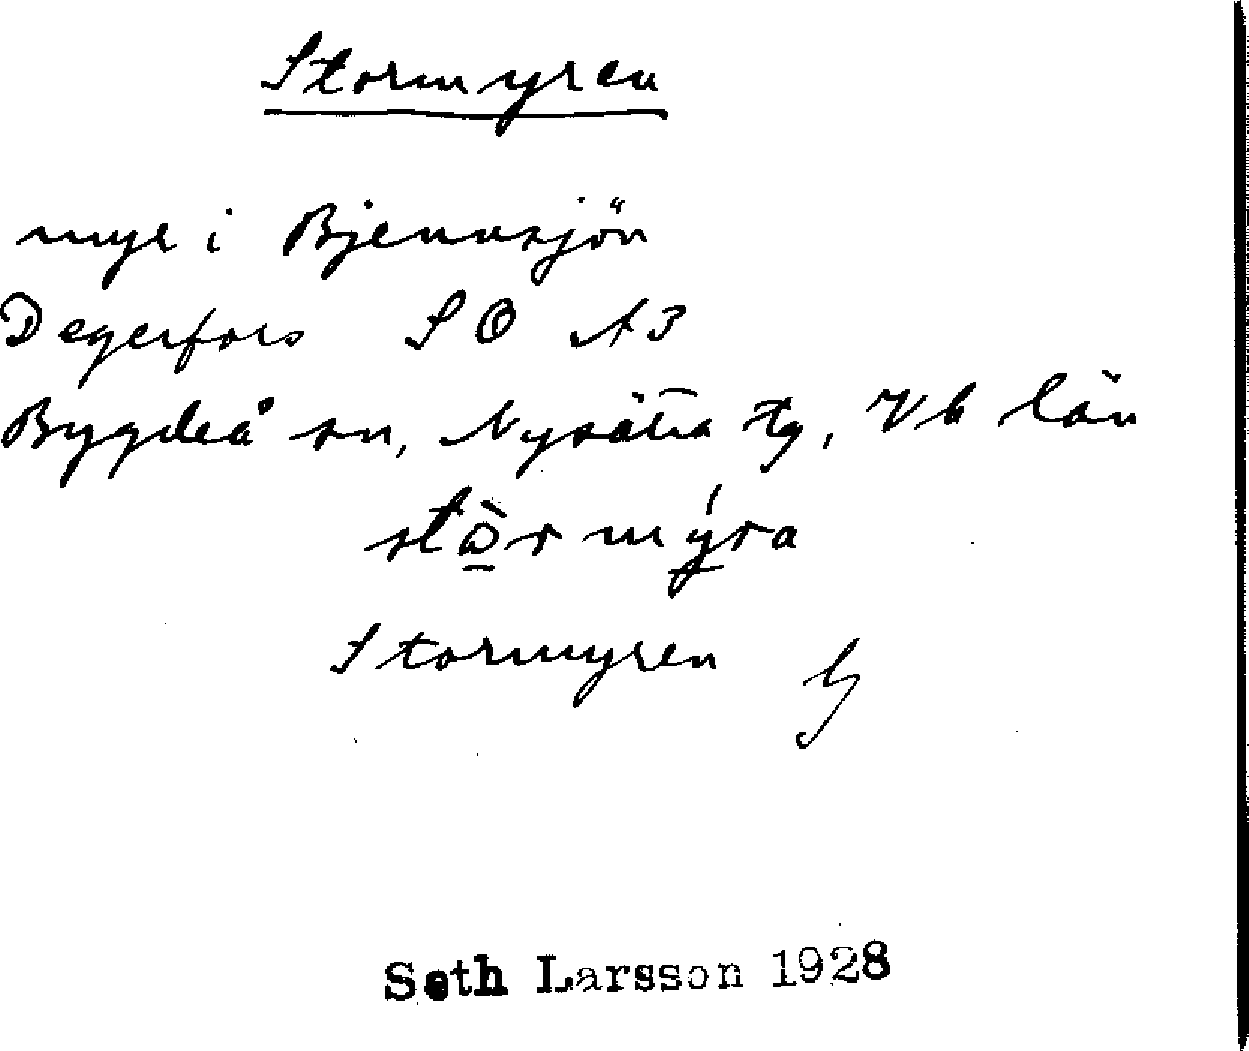 Stormyren
myr i Bjennsjön
Degerfors SO A3
Bygdeå sn, Nysätra tg, Vb län
stòrmýra
Stormyren
Seth Larsson 1928